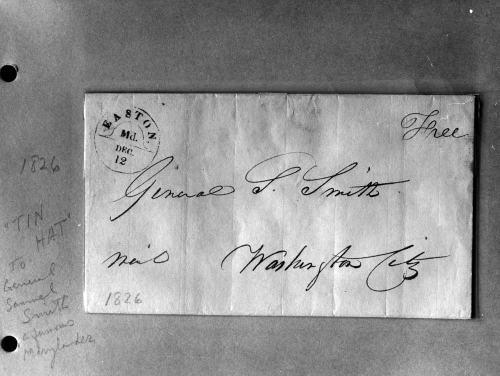 EASTON.
Md.
DEC.
12
Free
General S. Smith
Mail Washington City
1826
1826
"TIN
HAT"
TO
General
Samuel
Smith
a famous
Marylander